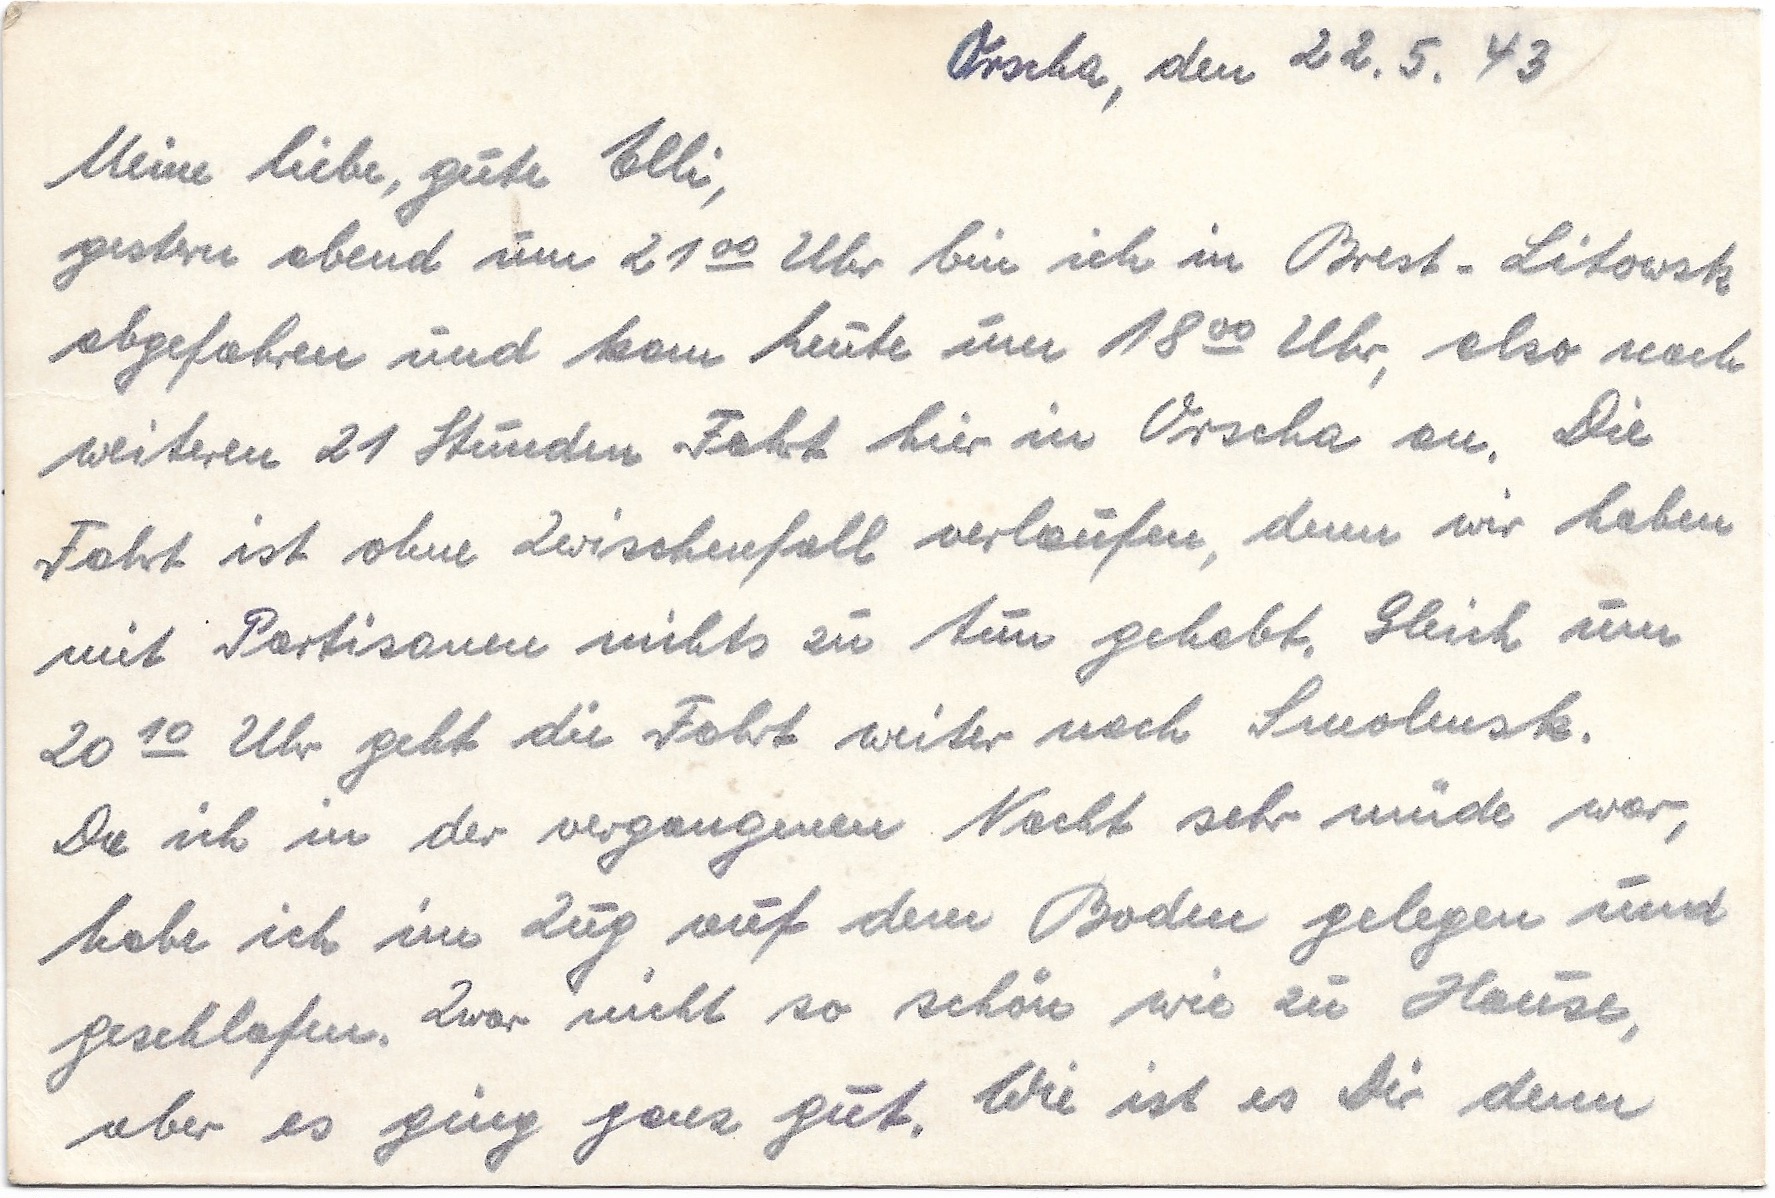 Orscha, den 22. 5. 43
Meine liebe, gute Elli,
gestern abend um 21 00 Uhr bin ich in Brest-Litowsk
abgefahren und kam heute um 18 00 Uhr, also nach
weiteren 21 Stunden Fahrt hier in Orscha an. Die
Fahrt ist ohne Zwischenfall verlaufen, denn wir haben
mit Partisanen nichts zu tun gehabt. Gleich um
20 10 Uhr geht die Fahrt weiter nach Smolensk.
Da ich in der vergangenen Nacht sehr müde war,
habe ich im Zug auf dem Boden gelegen und
geschlafen. Zwar nicht so schön wie zu Hause,
aber es ging ganz gut. Wie ist es Dir denn